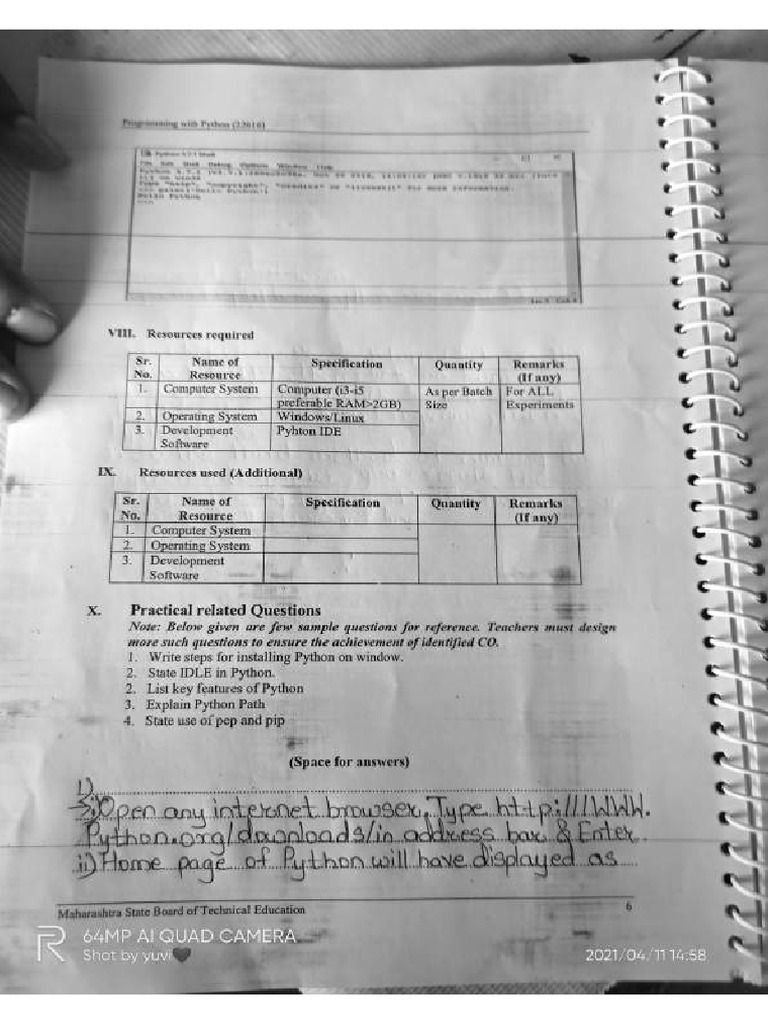 Programming with Python (22616)
Python 3.7.1 Shell
File Edit Shell Debug Options Window Help
Type "help", "copyright", "credits" or "license()" for more information.
Hello Python
VIII. Resources required
Sr. No. Name of Resource Specification Quantity Remarks (If any)
1. Computer System Computer (i3-i5 preferable RAM>2GB) As per Batch Size For ALL Experiments
2. Operating System Windows/Linux
3. Development Software Pyhton IDE
IX. Resources used (Additional)
Sr. No. Name of Resource Specification Quantity Remarks (If any)
1. Computer System
2. Operating System
3. Development Software
X. Practical related Questions
Note: Below given are few sample questions for reference. Teachers must design
more such questions to ensure the achievement of identified CO.
1. Write steps for installing Python on window.
2. State IDLE in Python.
2. List key features of Python
3. Explain Python Path
4. State use of pep and pip
(Space for answers)
1)
→i) Open any internet browser. Type http:///WWW.
Python.org/downloads/in address bar & Enter
ii) Home page of Python will have displayed as
Maharashtra State Board of Technical Education 6
R 64MP AI QUAD CAMERA
Shot by yuvi🖤 2021/04/11 14:58